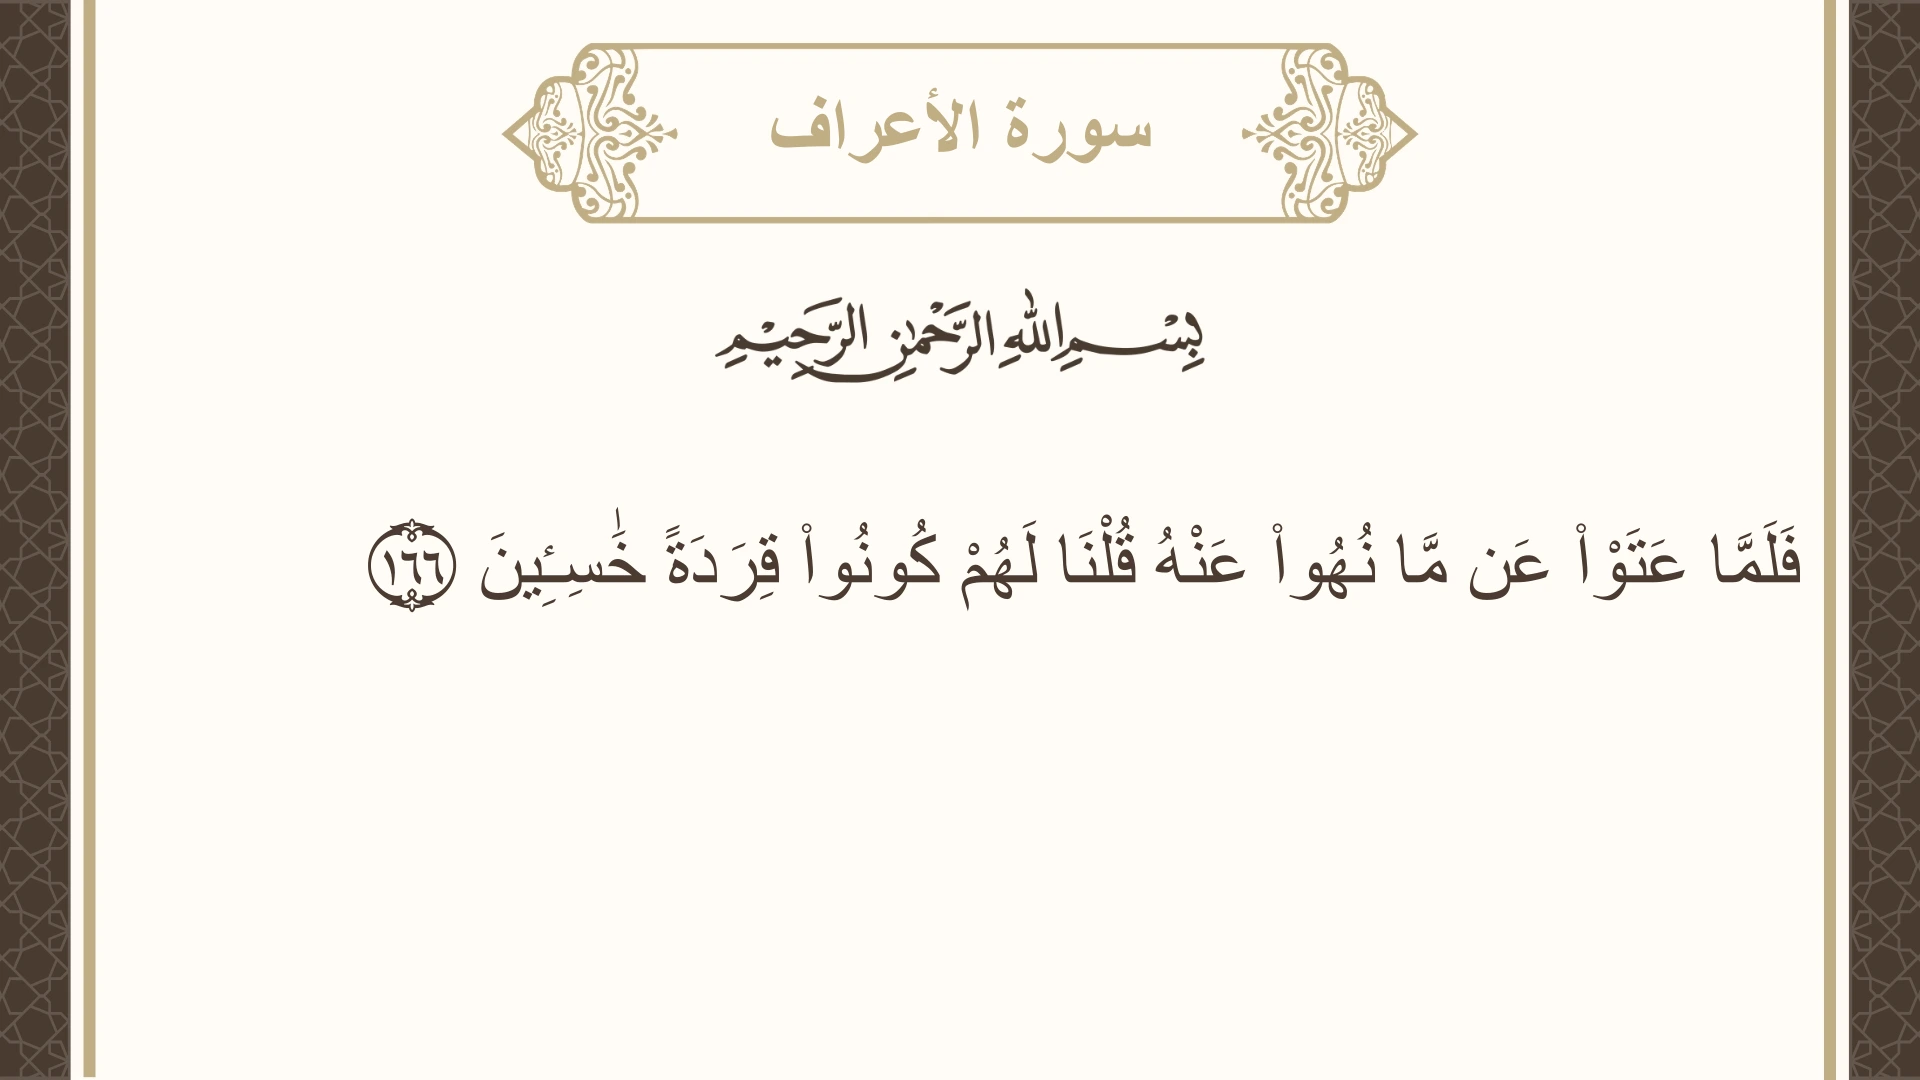 سورة الأعراف
بِسْمِ اللهِ الرَّحْمٰنِ الرَّحِيْمِ
فَلَمَّا عَتَوْاْ عَن مَّا نُهُواْ عَنْهُ قُلْنَا لَهُمْ كُونُواْ قِرَدَةً خَٰسِـِٔينَ ١٦٦